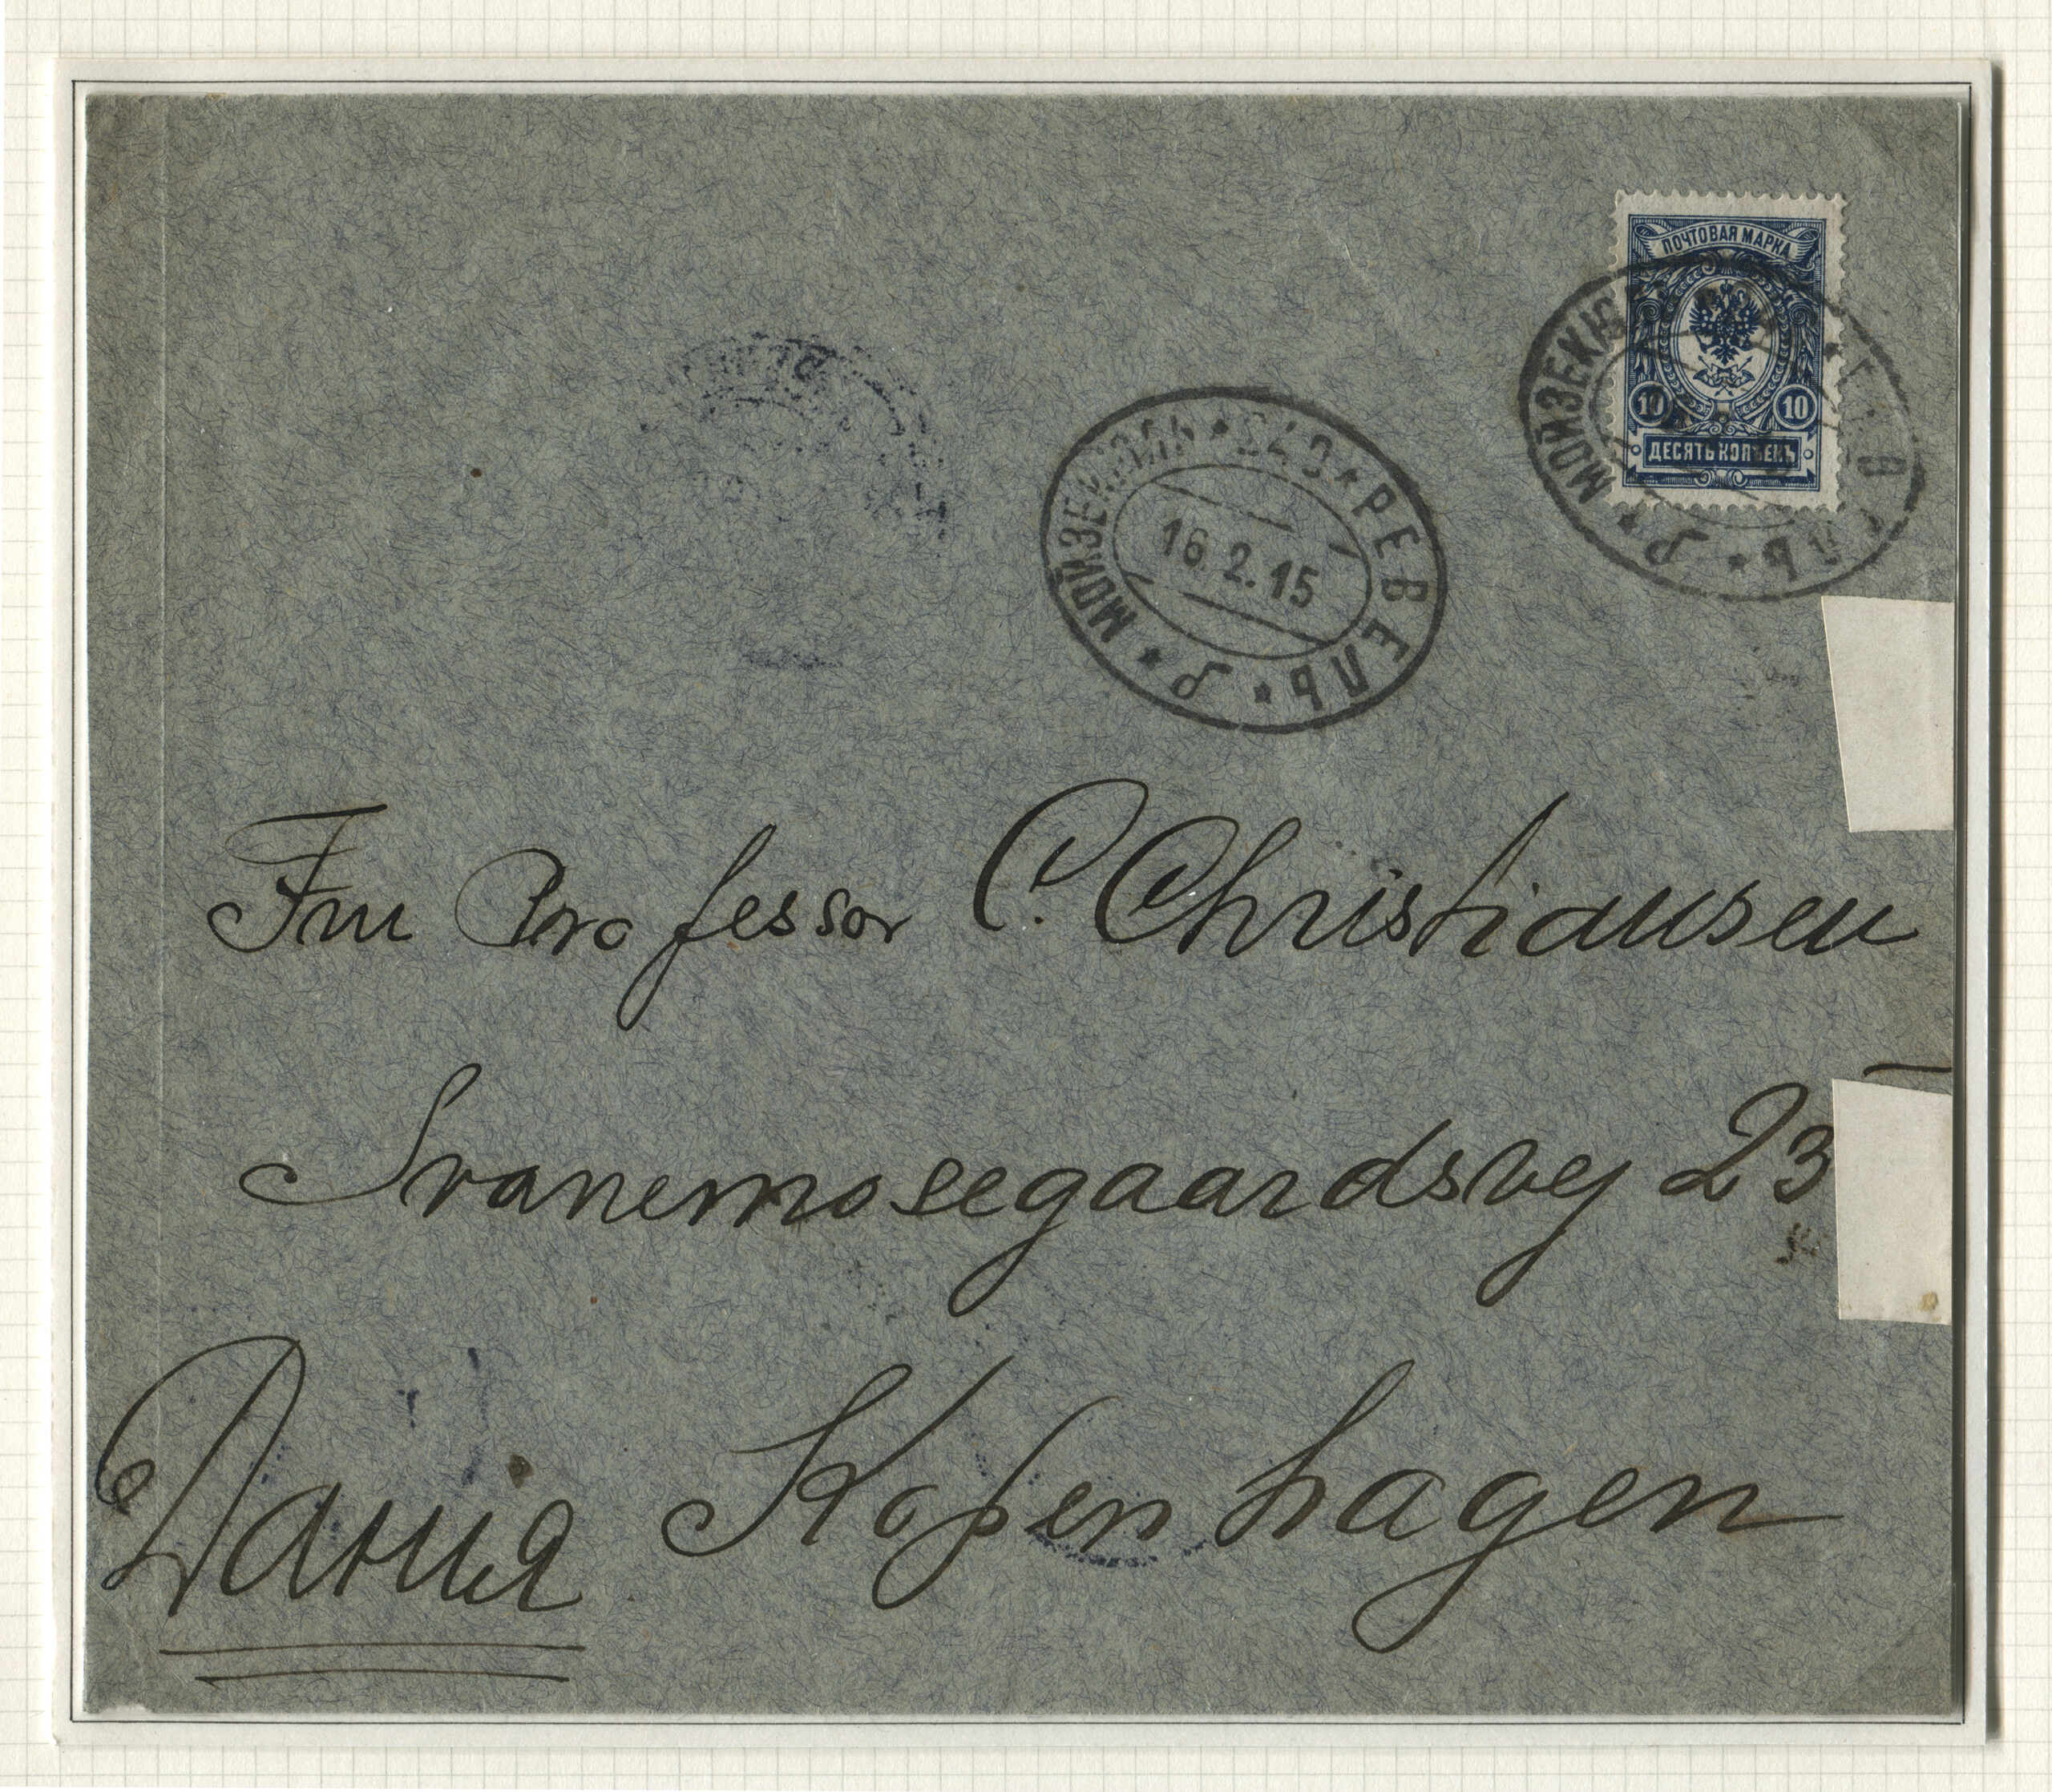 ПОЧТОВАЯ МАРКА
10 10
ДЕСЯТЬ КОПѢЕКЪ
МОЙЗЕКЮЛЬ * 243 * РЕВЕЛЬ * Р *
16.2.15
Fru Professor C. Christiansen
Svanemosegaardsvej 23
Данія Kopenhagen